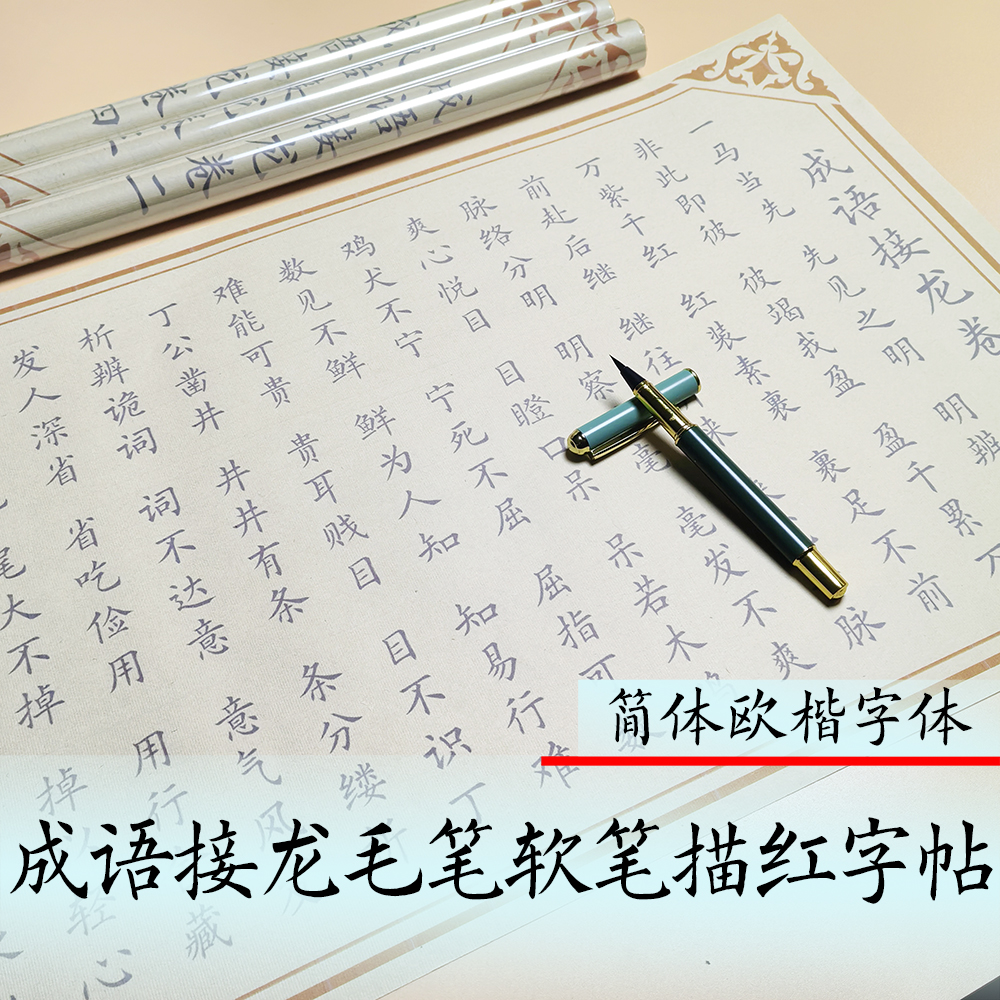 成语接龙卷四
成语接龙卷二
成语接龙卷
一马当先 先见之明 明辨
非此即彼 彼竭我盈 盈千累万
万紫千红 红装素裹 裹足不前
前赴后继 继往 来 脉
脉络分明 明察 毫 毫发不爽
爽心悦目 目瞪口呆 呆若木鸡
鸡犬不宁 宁死不屈 屈指可数
数见不鲜 鲜为人知 知易行难
难能可贵 贵耳贱目 目不识丁
丁公凿井 井井有条 条分缕析
析辨诡词 词不达意 意气风发
发人深省 省吃俭用 用行 藏
尾大不掉 掉以轻心
简体欧楷字体
成语接龙毛笔软笔描红字帖